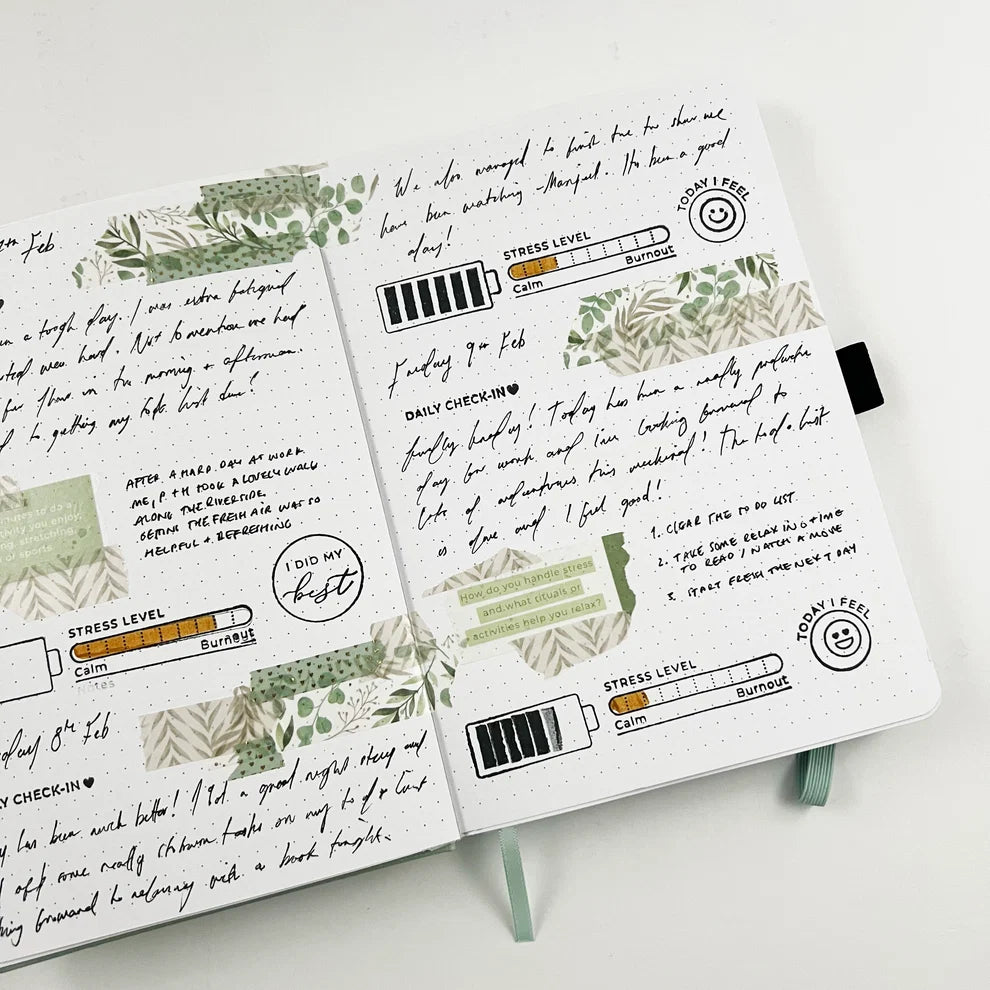 7th Feb
a tough day. I was extra fatigued
hard. Not to mention we had
in the morning + afternoon.
to getting my todo list done!
AFTER A HARD DAY AT WORK
ME, P + H TOOK A LOVELY WALK
ALONG THE RIVERSIDE.
GETTING THE FRESH AIR WAS SO
HELPFUL + REFRESHING
to do
you enjoy,
stretching
or sports
I DID MY
best
STRESS LEVEL
Calm Burnout
Notes
8th Feb
CHECK-IN
has been much better! I got a good nights sleep and
off some really stubborn tasks on my to do list
forward to relaxing with a book tonight.
We also managed to finish the tv show we
have been watching - Manifest. Its been a good
day!
TODAY I FEEL
STRESS LEVEL
Calm Burnout
Friday 9th Feb
DAILY CHECK-IN
finally Friday! Today has been a really productive
day for work and im looking forward to
lots of adventures this weekend! The to do list
is done and I feel good!
1. CLEAR THE TO DO LIST
2. TAKE SOME RELAXING TIME
TO READ / WATCH A MOVE
3. START FRESH THE NEXT DAY
How do you handle stress
and what rituals or
activities help you relax?
TODAY I FEEL
STRESS LEVEL
Calm Burnout